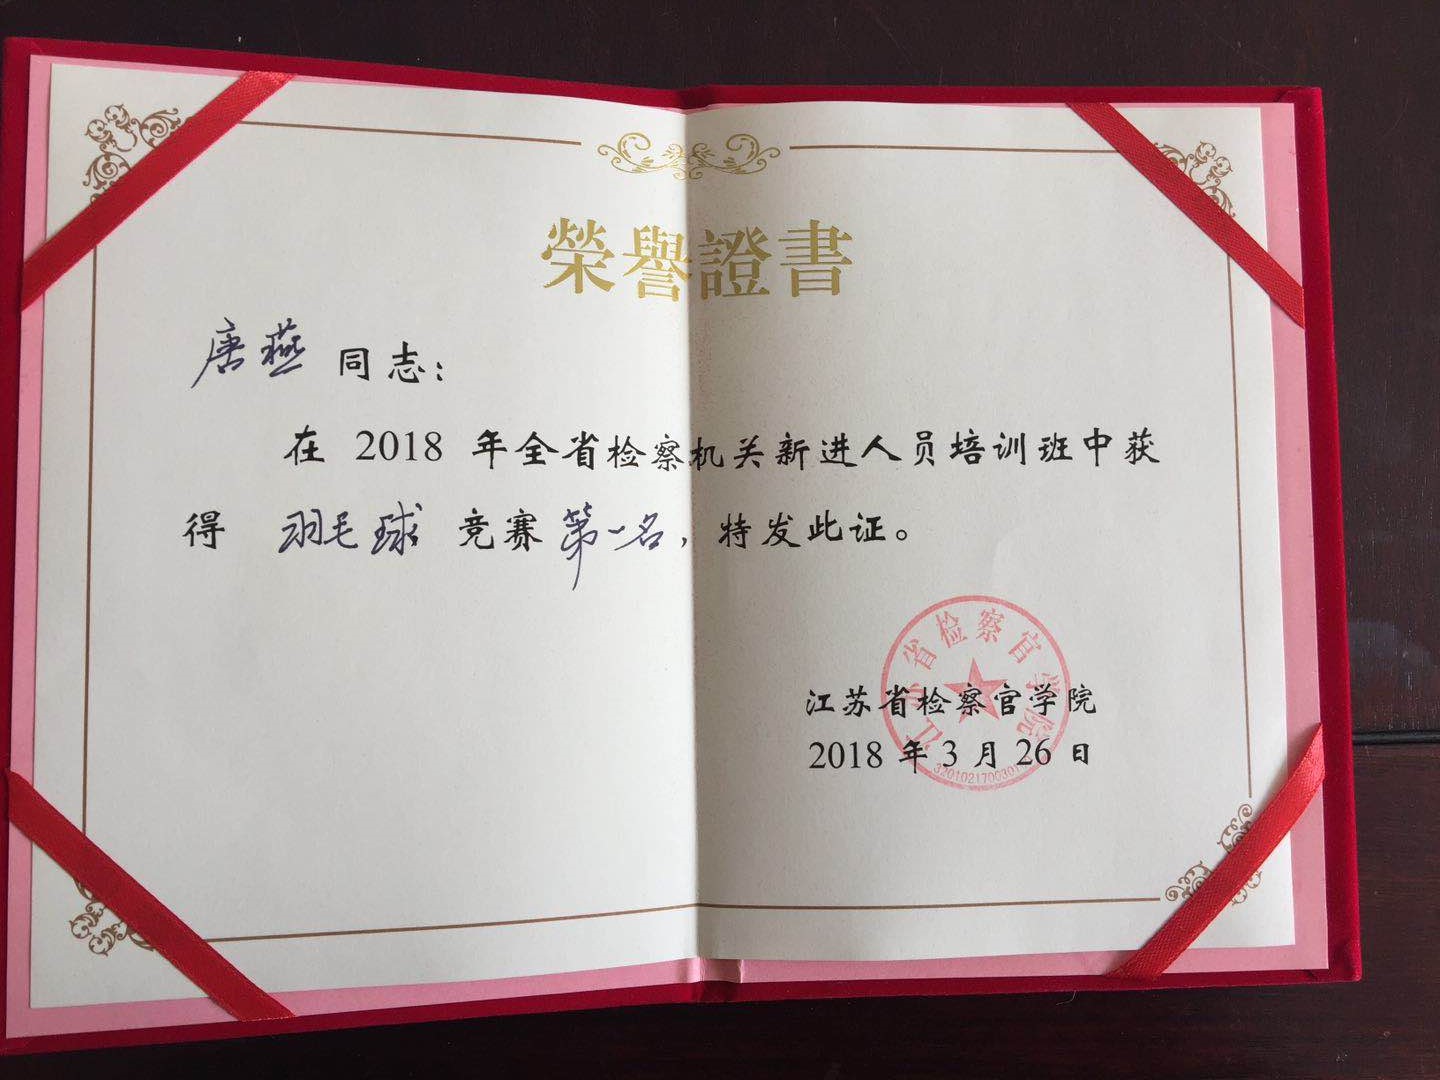 榮譽證書
唐燕同志：
在 2018 年全省检察机关新进人员培训班中获
得 羽毛球 竞赛第一名，特发此证。
江苏省检察官学院
江苏省检察官学院
2018 年 3 月 26 日